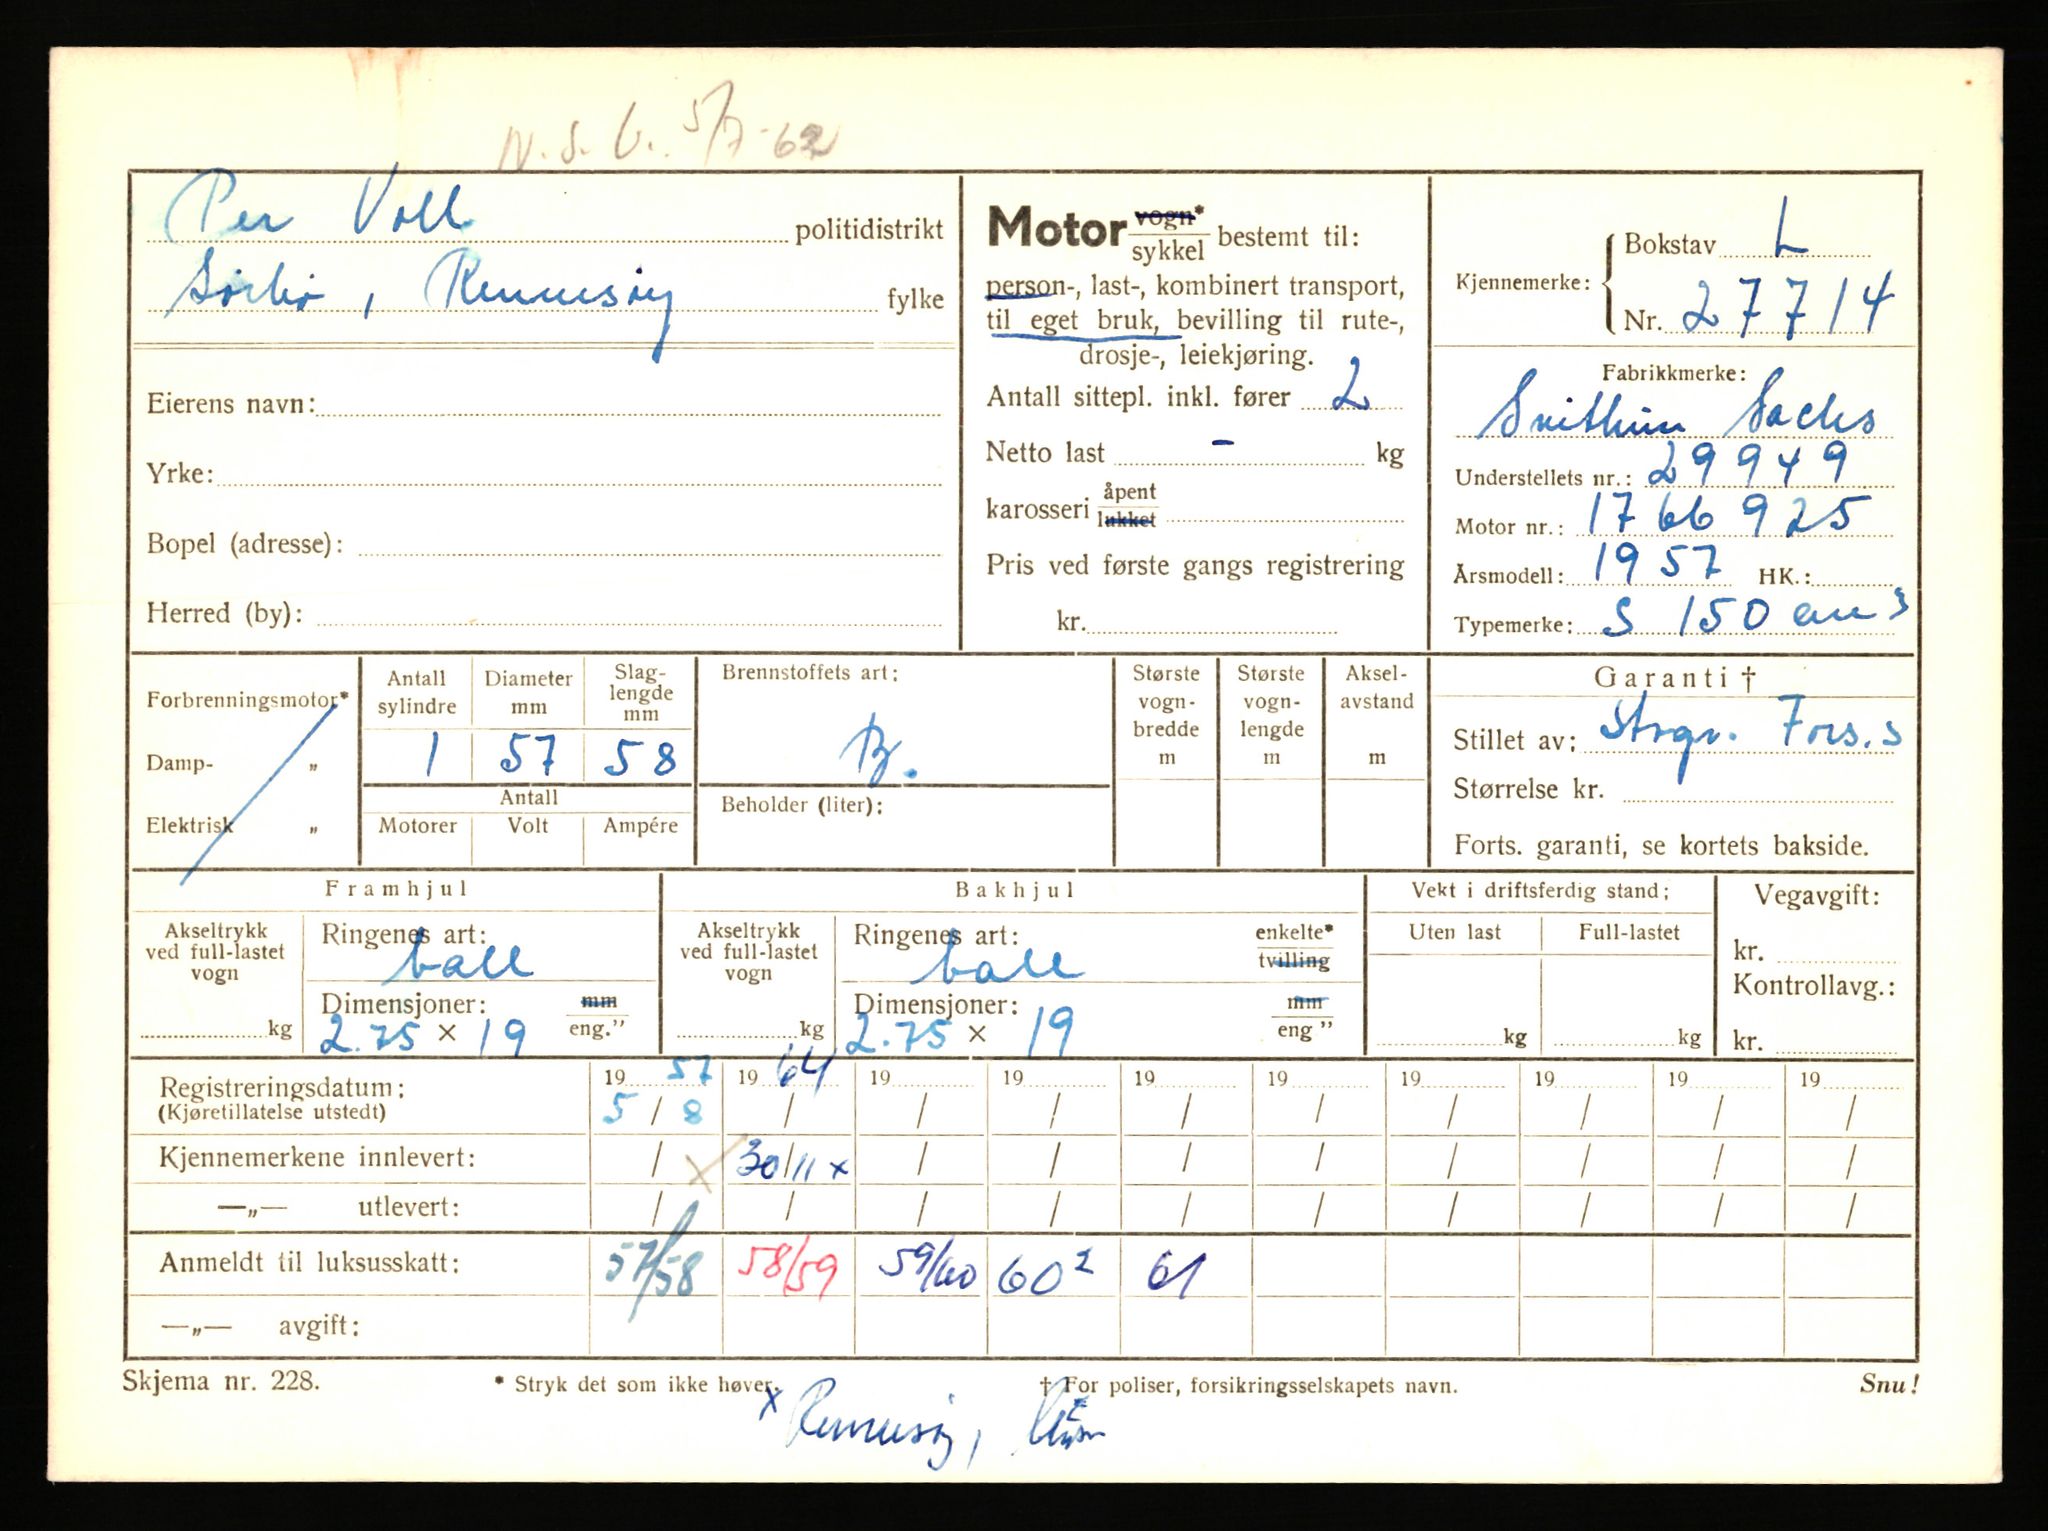 N. S. U. 5/7-62
Per Voll politidistrikt
Sörbö, Rennesöy fylke
Eierens navn:
Yrke:
Bopel (adresse):
Herred (by):
Motor vogn* sykkel bestemt til:
person-, last-, kombinert transport,
til eget bruk, bevilling til rute-,
drosje-, leiekjøring.
Antall sittepl. inkl. fører 2
Netto last - kg
karosseri åpent lukket
Pris ved første gangs registrering
kr.
Kjennemerke: Bokstav L
Nr. 27714
Fabrikkmerke:
Svithun Sachs
Understellets nr.: 29949
Motor nr.: 1766925
Årsmodell: 1957 HK.:
Typemerke: S 150 cm3
Forbrenningsmotor*
Damp- „
Elektrisk „
Antall sylindre
Diameter mm
Slag-lengde mm
1 57 58
Antall
Motorer Volt Ampére
Brennstoffets art:
B.
Beholder (liter):
Største vogn-bredde m
Største vogn-lengde m
Aksel-avstand m
Garanti †
Stillet av: Strgr. Fors.s
Størrelse kr.
Forts. garanti, se kortets bakside.
Framhjul
Akseltrykk ved full-lastet vogn
kg
Ringenes art:
ball
Dimensjoner: mm
2.75 × 19 eng.”
Bakhjul
Akseltrykk ved full-lastet vogn
kg
Ringenes art: enkelte*
ball tvilling
Dimensjoner: mm
2.75 × 19 eng ”
Vekt i driftsferdig stand;
Uten last Full-lastet
kg kg
Vegavgift:
kr.
Kontrollavg.:
kr.
Registreringsdatum: 19 57 19 64 19 19 19 19 19 19 19 19
(Kjøretillatelse utstedt) 5 / 8 / / / / / / / / /
Kjennemerkene innlevert: / x 30/11 x / / / / / / / /
—„— utlevert: / / / / / / / / / /
Anmeldt til luksusskatt: 57/58 58/59 59/60 60² 61
—„— avgift:
Skjema nr. 228. * Stryk det som ikke høver. † For poliser, forsikringsselskapets navn. Snu!
x Rennesöy,